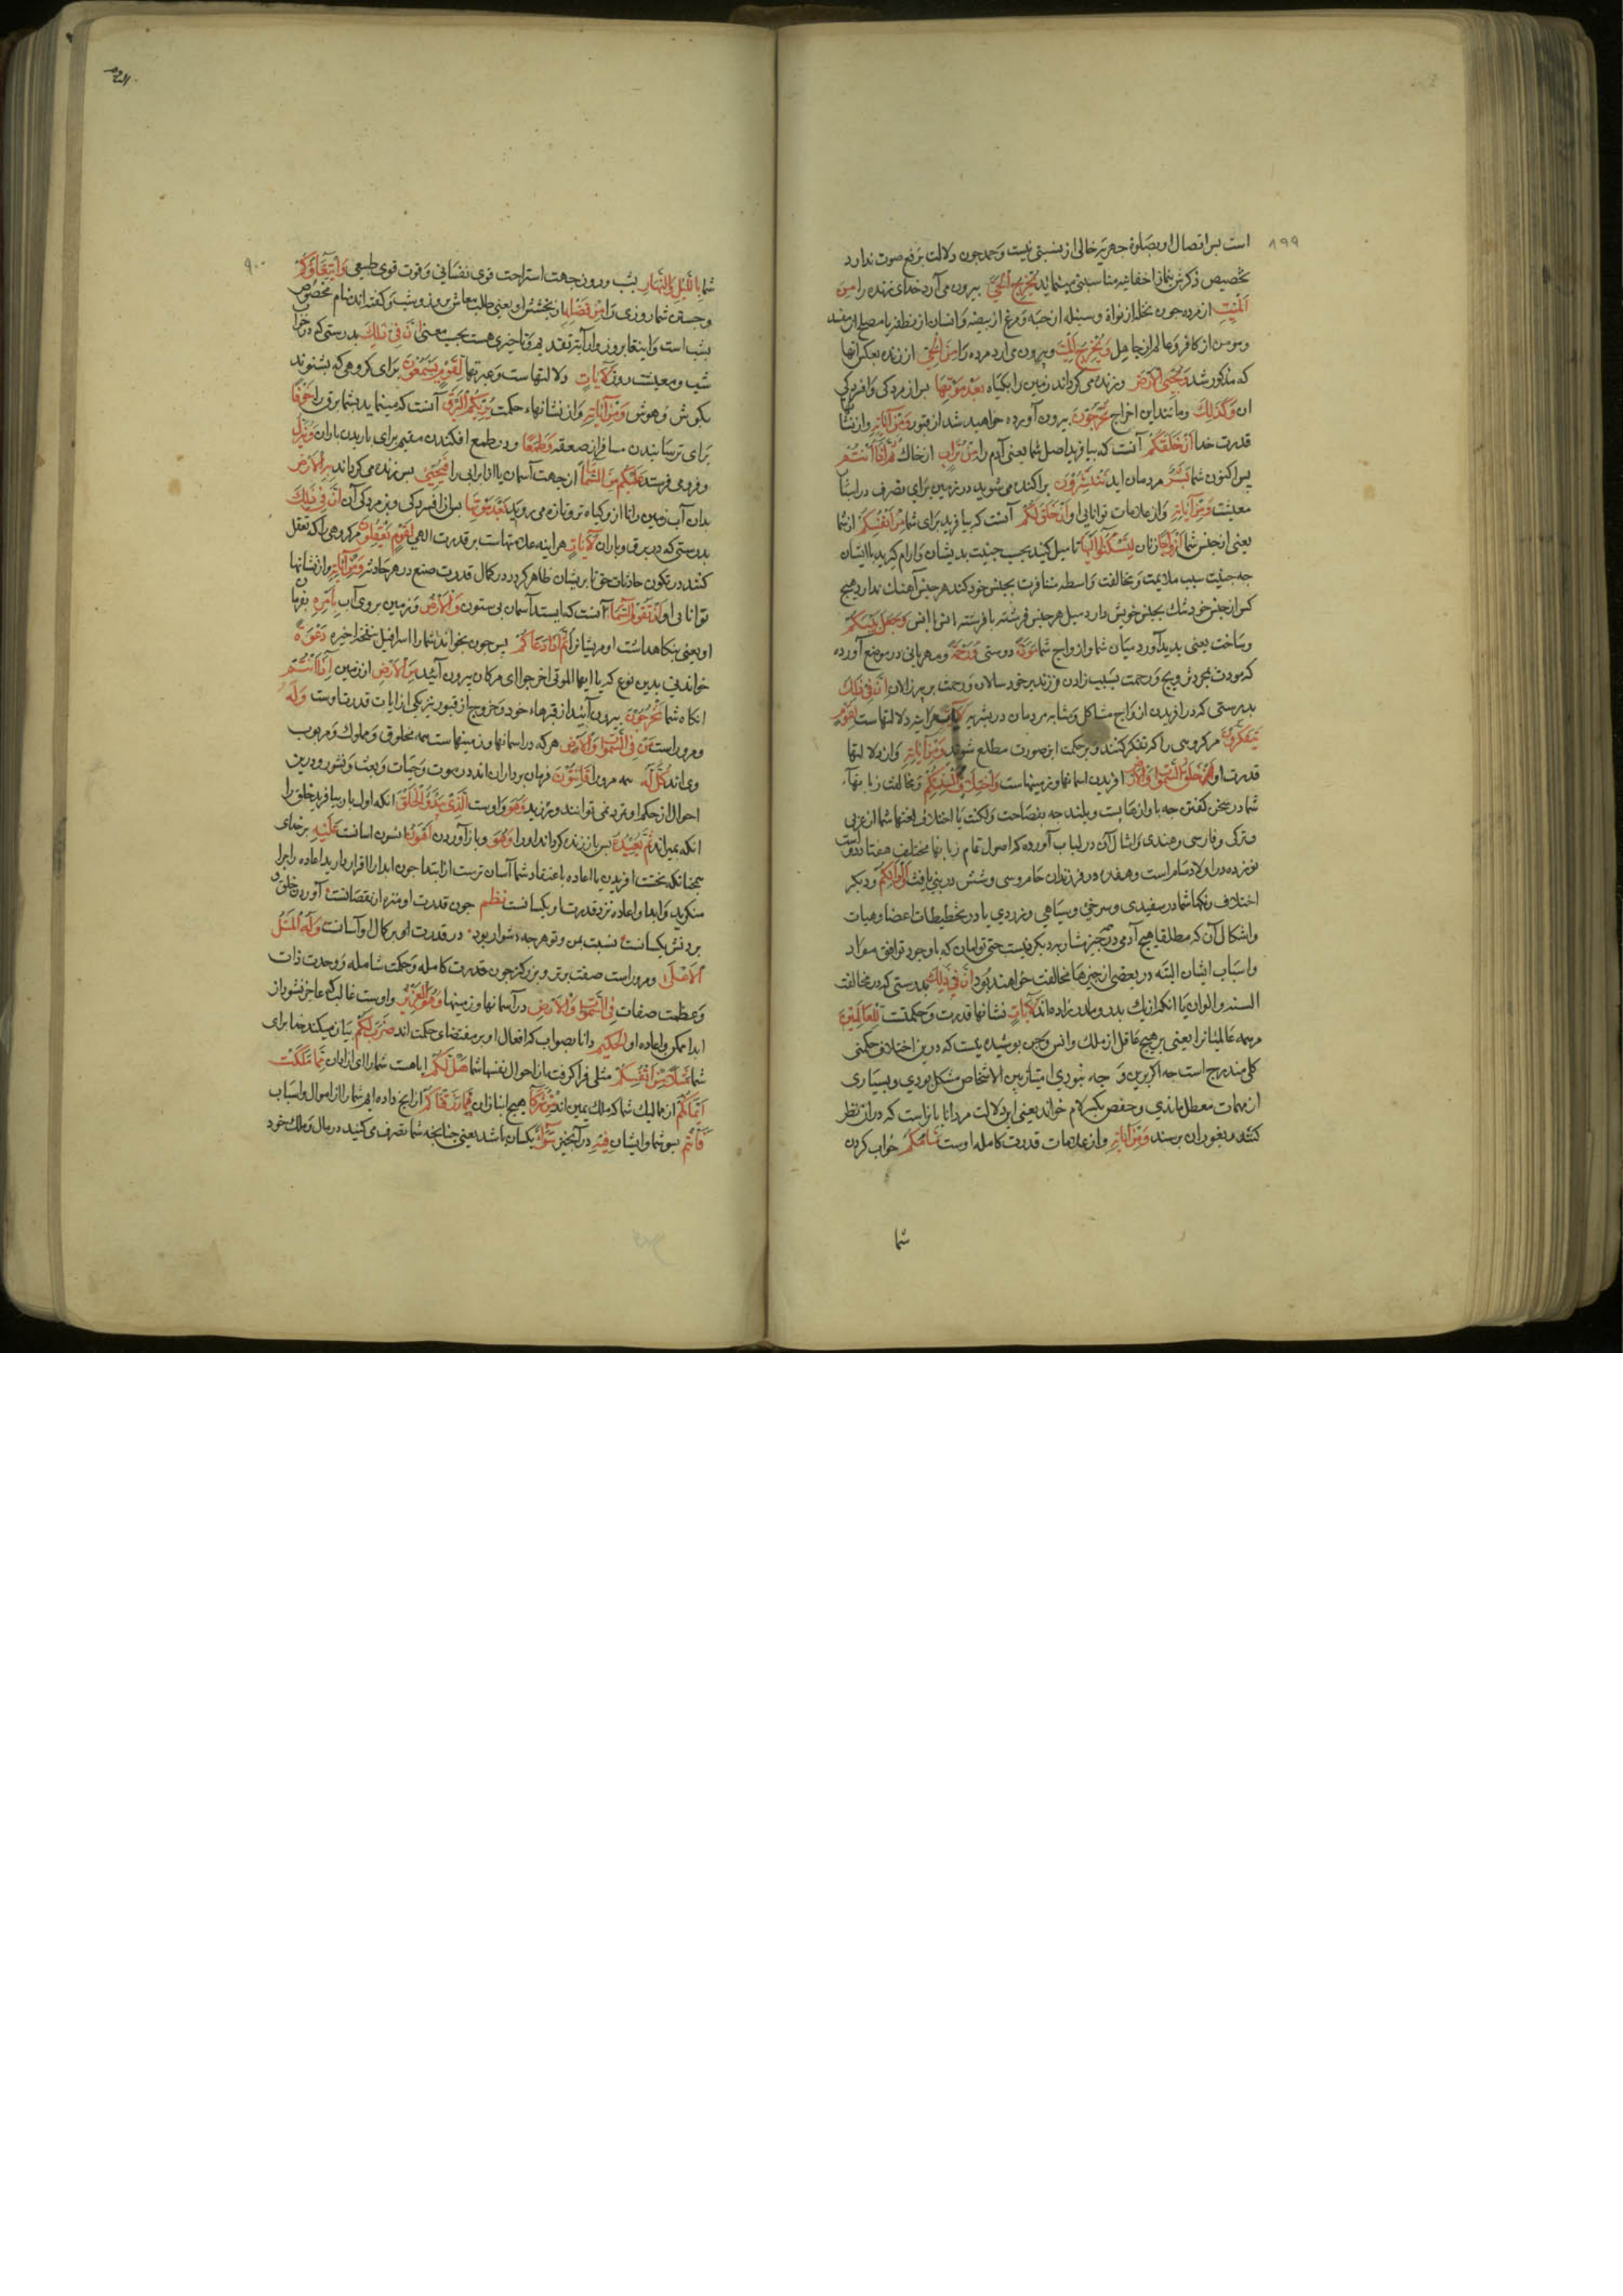 ۸۹۹
است پس اتصال او بصلوة جهریه خالی از نسبتی نیست و حمد چون دلالت برفع صوت ندارد
تخصیص ذکرش بنماز اخفائیه مناسبتی مینماید یُخرِجُ الحَیَّ بیرون می آرد خدای زنده را مِنَ
المَیِّتِ از مرده چون نخله از نواة و سنبله از حبه و مرغ از بیضه و انسان از نطفه یا مصلح از مفسد
و مومن از کافر و عالم از جاهل وَیُخرِجُ المَیِّتَ و بیرون می ارد مرده را مِنَ الحَیِّ از زنده بعکس انها
که مذکور شد وَیُحیِی الاَرضَ و زنده می کرداند زمین را بکیاه بَعدَ مَوتِها پس از مردکی و افسردکی
ان وَکَذلِکَ و مانند این اخراج تُخرَجُونَ بیرون آورده خواهید شد از قبور وَمِن آیاتِهِ و از نشانهای
قدرت خدا اَن خَلَقَکُم آنست که بیافرید اصل شما یعنی آدم را مِن تُرابٍ از خاک ثُمَّ اِذا اَنتُم
پس اکنون شما بَشَرٌ مردمان اید تَنتَشِرُونَ پراکنده می شوید در زمین برای تصرف در اسباب
معیشت وَمِن آیاتِهِ و از علامات توانایی او اَن خَلَقَ لَکُم آنست که بیافرید برای شما مِن اَنفُسِکُم از شما
یعنی از جنس شما اَزواجًا زنان لِتَسکُنُوا اِلَیها تا میل کنید بسبب جنسیت بدیشان و ارام کیرید با ایشان
چه جنسیت سبب ملایمت و مخالفت واسطه منافرت بجنس خود کند هر جنس آهنک ندارد هیچ
کس از جنس خود ننک بجنس خویش دارد میل هر جنس فرشته با فرشته انس با انس وَجَعَلَ بَینَکُم
و ساخت یعنی پدید آورد میان شما و ازواج شما مَوَدَّةً دوستی وَرَحمَةً و مهربانی در موضح آورده
که مودت بخردی و رحمت بسبب زادن فرزند بر خود سالان و رحمت بر پیرزالان اِنَّ فی ذلِکَ
بدرستی که در افریدن ازواج مشاکل و مشابه مردمان در بشریه لَآیاتٍ هراینه دلالتهاست لِقَومٍ
یَتَفَکَّرُونَ مر کروهی را که تفکر کنند و بر حکمت این صورت مطلع شوند وَمِن آیاتِهِ و از دلالتهای
قدرت او خَلقُ السَّمواتِ وَالاَرضِ افریدن اسمانها و زمینهاست وَاختِلافُ اَلسِنَتِکُم و مخالفت زبانهاء
شما در سخن کفتن چه باواز پست و بلند چه بفصاحت و لکنت یا اختلاف لغتها شما از عربی
و ترکی و فارسی و هندی و امثال آن در لباب آورده که اصول تمام زبانها مختلف هفتاد و دو است
نوزده در اولاد سام است و هفده در فرزندان حام و سی و شش در بنی یافث وَاَلوانِکُم و دیکر
اختلاف رنکها شما در سفیدی و سرخی و سیاهی و زردی یا در تخطیطات اعضا و هیات
و اشکال آن که مطلقا هیچ آدمی در همه چیز مشابه دیکر نیست حتی توامان که باوجود توافق مواد
و اسباب ایشان البته در بعضی از چیزها مخالفت خواهند بود اِنَّ فی ذلِکَ بدرستی که در مخالفت
السنه و الوان با انکه از یک پدر و مادر زاده اند لَآیاتٍ نشانها قدرت و حکمتست لِلعالَمینَ
مر همه عالمیانرا یعنی بر هیچ عاقل از ملک و انس و جن پوشیده نیست که درین اختلاف حکمتی
کلی مندرج است چه اکر برین وجه نبودی امتیاز بین الاشخاص مشکل بودی و بسیاری
از مهمات معطل ماندی و حفص بکسر لام خواند یعنی این دلالت مر دانایانراست که در آن نظر
کنند و بغور ان برسند وَمِن آیاتِهِ و از علامات قدرت کامله اوست مَنامُکُم خواب کردن
شما
۹۰۰
شما بِاللَّیلِ وَالنَّهارِ بشب و روز جهت استراحت قوی نفسانی و قوت قوی طبیعی وَابتِغاؤُکُم
و جستن شما روزی را مِن فَضلِهِ از بخشش او یعنی طلب معاش بروز و شب و کفته اند منام مخصوص
بشب است و ابتغا بروز و در آیة تقدیم و تاخیری هست بحسب معنی اِنَّ فی ذلِکَ بدرستی که در خواب
شب و معیشت روز لَآیاتٍ دلالتهاست و عبرتها لِقَومٍ یَسمَعُونَ برای کروهی که بشنوند
بکوش و هوش وَمِن آیاتِهِ و از نشانهاء حکمت یُریکُمُ البَرقَ آنست که مینماید بشما برق را خَوفًا
برای ترسانیدن مسافر از صعقه وَطَمَعًا و در طمع افکندن مقیم برای باریدن باران وَیُنَزِّلُ
و فرو می فرستد عَلَیکُم مِنَ السَّماءِ از جهت آسمان یا از ابر آبی را فَیُحیی پس زنده می کرداند بِهِ الاَرضَ
بدان آب زمین را تا از و کیاه تر و تازه می روید بَعدَ مَوتِها پس از افسردکی و پژمردکی آن اِنَّ فی ذلِکَ
بدرستی که در برق و باران لَآیاتٍ هراینه علامتهاست بر قدرت الهی لِقَومٍ یَعقِلُونَ مر کروهی را که تعقل
کنند در تکون حادثات حق تا بریشان ظاهر کردد کمال قدرت صنع در هر حادثه وَمِن آیاتِهِ و از نشانها
توانائی او اَن تَقُومَ السَّماءُ آنست که بایستد آسمان بی ستون وَالاَرضُ و زمین بر روی آب بِاَمرِهِ بفرمان
او یعنی بنکاهداشت او مریشانرا ثُمَّ اِذا دَعاکُم پس چون بخواند شما را اسرافیل بنفخه اخیره دَعوَةً
خواندنی بدین نوع که یا ایها الموتی اخرجوا ای مردکان بیرون آئید مِنَ الاَرضِ از زمین اِذا اَنتُم
انکاه شما تَخرُجُونَ بیرون آئید از قبرهاء خود و خروج از قبور نیز یکی از آیات قدرت اوست وَلَهُ
و مر وراست مَن فِی السَّمواتِ وَالاَرضِ هر که در اسمانها و زمینهاست همه مخلوق و مملوک و مربوب
وی اند کُلٌّ لَهُ همه مر ورا قانِتُونَ فرمان برداران اند در موت و حیات و بعث و نشور و درین
احوال از حکم او تمرد نمی توانند ورزید وَهُوَ و اوست الَّذی یَبدَؤُا الخَلقَ انکه اول بار بیافرید خلق را
انکه بمیراند ثُمَّ یُعیدُهُ پس باز زنده کرداند او را وَهُوَ و باز آوردن اَهوَنُ انسون اسانست عَلَیهِ بر خدای
همچنانکه نخست افریدن یا اعاده باعتقاد شما آسان ترست از ابتدا چون ابدا را اقرار دارید اعاده را چرا
منکرید و ابدا و اعاده نزد قدرت او یکسانست نظم چون قدرت او منزه از نقصانست آوردن خلق و
بردنش یکسانست نسبت بمن و تو هرچه دشوار بود در قدرت او بر کمال او آسانست وَلَهُ المَثَلُ
الاَعلی و مر وراست صفت برتر و بزرکتر چون قدرت کامله و حکمت شامله و وحدت ذات
و عظمت صفات فِی السَّمواتِ وَالاَرضِ در آسمانها و زمینها وَهُوَ العَزیزُ و اوست غالب که عاجز نشود از
ابدا ممکن و اعاده او الحَکیمُ دانا بصواب که افعال او بر مقتضای حکمت اند ضَرَبَ لَکُم بیان میکند خدا برای
شما مَثَلًا مِن اَنفُسِکُم مثلی فرا کرفته از احوال نفسها شما هَل لَکُم ایا هست شما را ای ازادان مِمّا مَلَکَت
اَیمانُکُم از ممالیک شما که ملک یمین اند مِن شُرَکاءَ هیچ انبازان فی ما رَزَقناکُم از آنچ داده ایم شما را از اموال و اسباب
فَاَنتُم پس شما و ایشان فیهِ در آن چیز سَواءٌ یکسان باشد یعنی چنانچه شما تصرف می کنید در مال و ملک خود